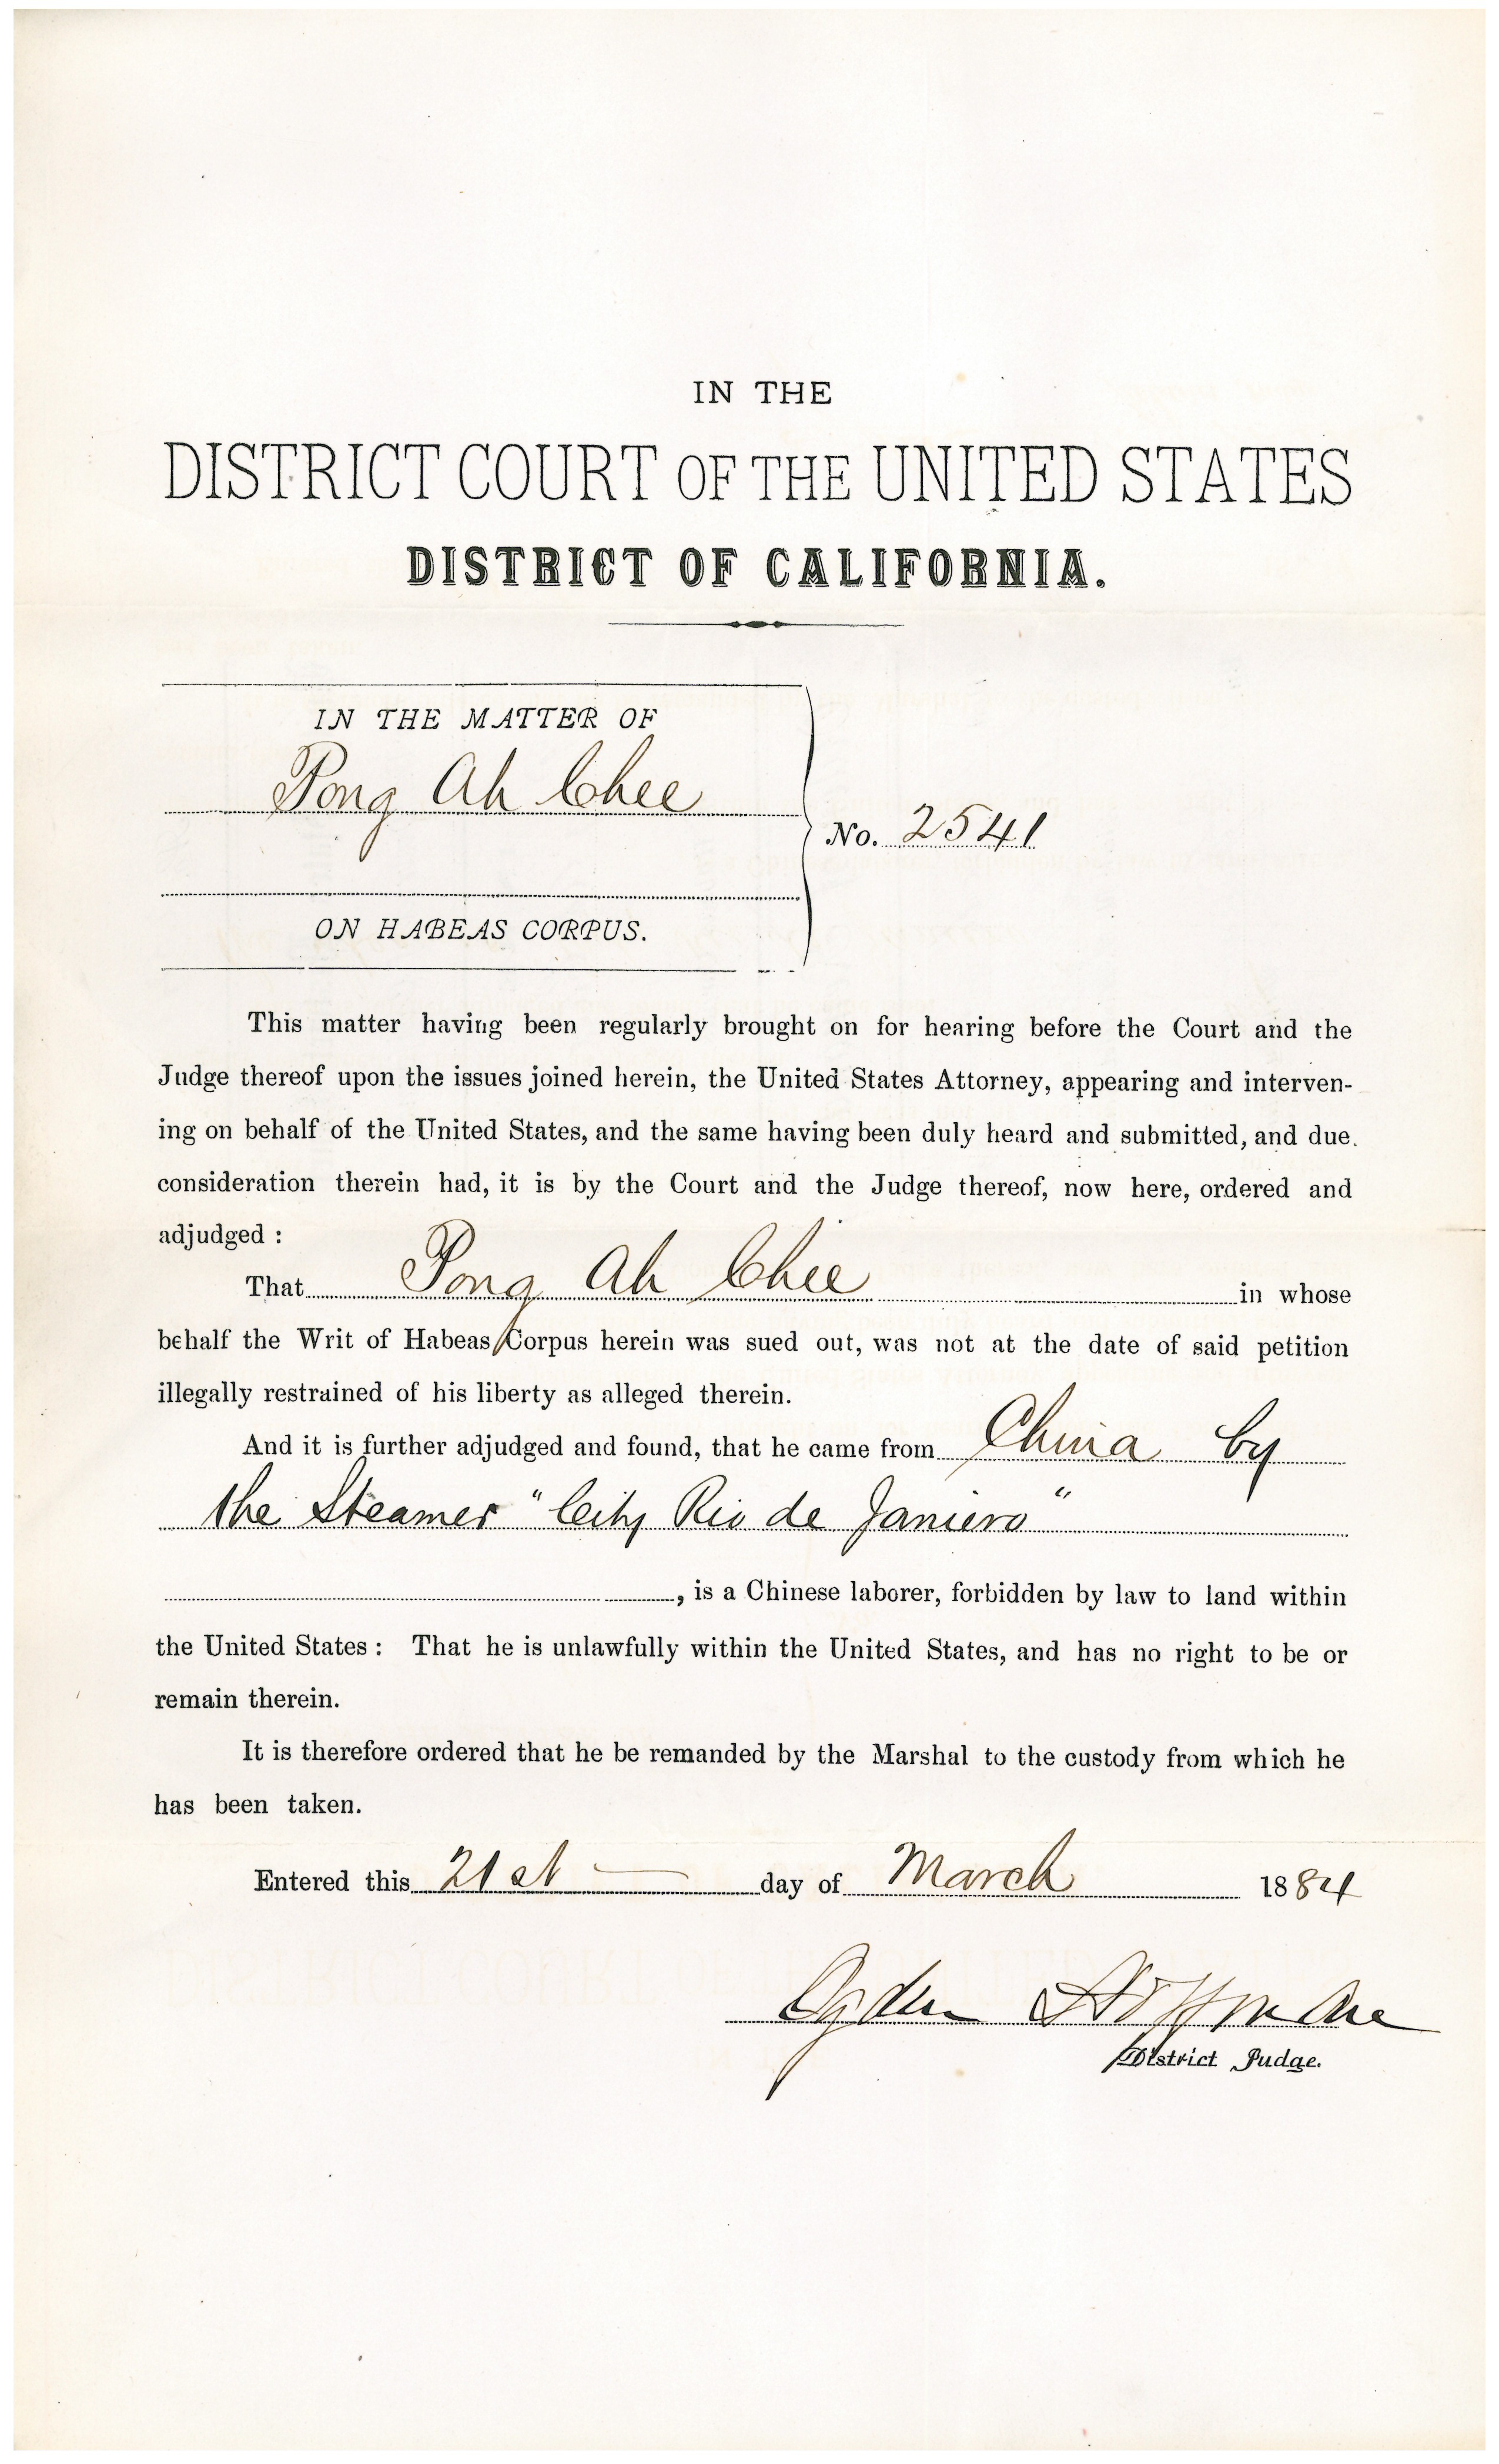 IN THE
DISTRICT COURT OF THE UNITED STATES
DISTRICT OF CALIFORNIA.
IN THE MATTER OF
Pong Ah Chee
No. 2541
ON HABEAS CORPUS.
This matter having been regularly brought on for hearing before the Court and the
Judge thereof upon the issues joined herein, the United States Attorney, appearing and interven-
ing on behalf of the United States, and the same having been duly heard and submitted, and due
consideration therein had, it is by the Court and the Judge thereof, now here, ordered and
adjudged :
That Pong Ah Chee in whose
behalf the Writ of Habeas Corpus herein was sued out, was not at the date of said petition
illegally restrained of his liberty as alleged therein.
And it is further adjudged and found, that he came from China by
the Steamer "City Rio de Janiero"
, is a Chinese laborer, forbidden by law to land within
the United States : That he is unlawfully within the United States, and has no right to be or
remain therein.
It is therefore ordered that he be remanded by the Marshal to the custody from which he
has been taken.
Entered this 21st day of March 1884
Ogden Hoffman
District Judge.